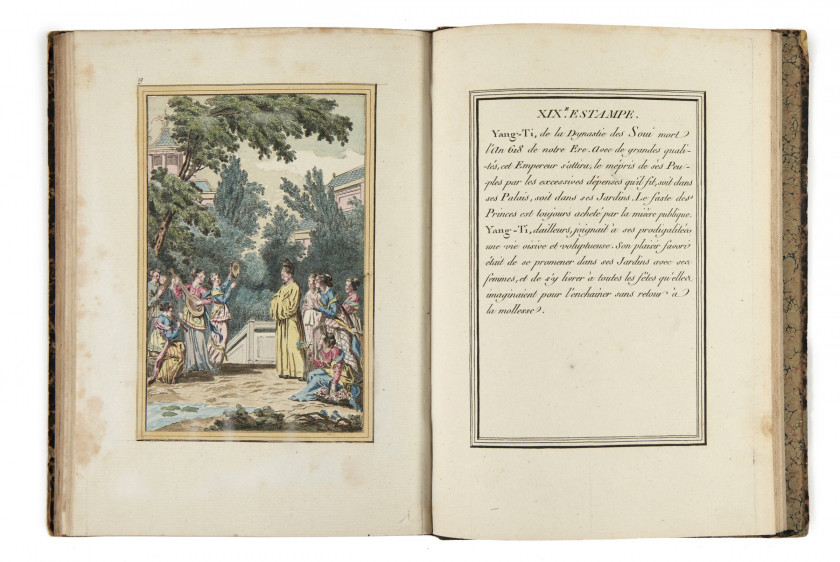 19
XIX.e ESTAMPE.
Yang-Ti, de la Dynastie des Soui mort
l'An 618 de notre Ere. Avec de grandes quali-
-tés, cet Empereur s'attira, le mépris de ses Peu-
-ples par les excessives dépenses qu'il fit, soit dans
ses Palais, soit dans ses Jardins. Le faste des
Princes est toujours acheté par la misère publique.
Yang-Ti, dailleurs, joignait a ses prodigalités
une vie oisive et voluptueuse. Son plaisir favori
était de se promener dans ses Jardins avec ses
femmes, et de s'y livrer a toutes les fêtes qu'elles
imaginaient pour l'enchainer sans retour à
la mollesse.